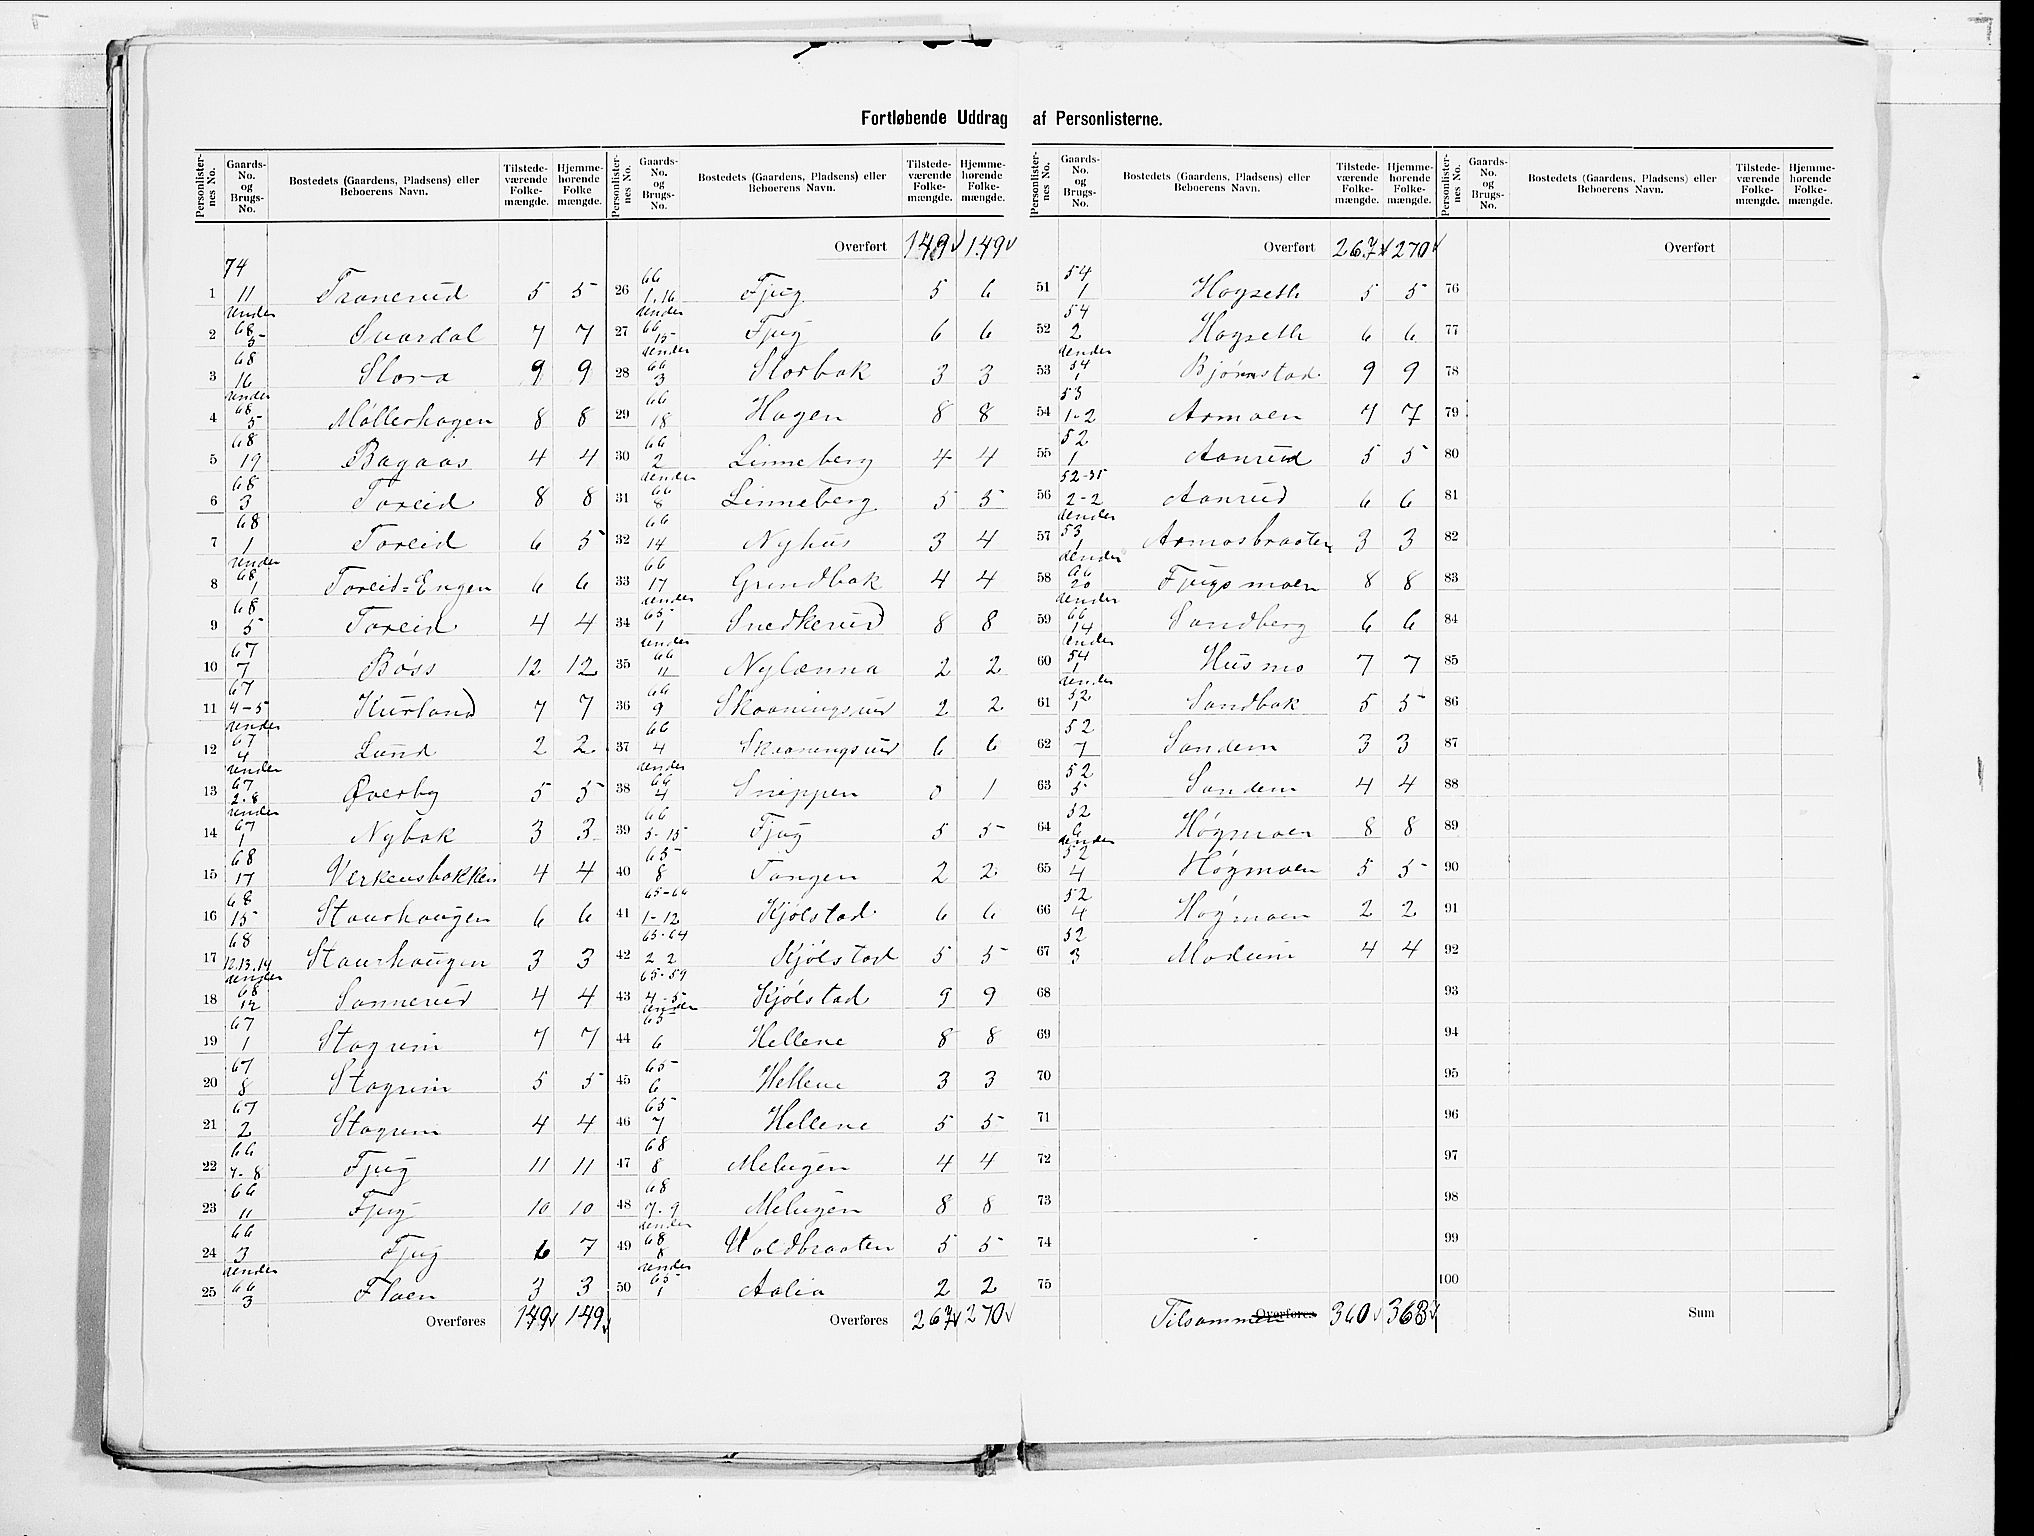 Fortløbende Uddrag af Personlisterne.
Personlisternes No. Gaards-No. og Brugs-No. Bostedets (Gaardens, Pladsens) eller Beboerens Navn. Tilstedeværende Folkemængde. Hjemmehørende Folkemængde.
74
1 11 Tranerud 5 5
under
2 68 5 Svardal 7 7
3 68 16 Slora 9 9
under
4 68 5 Møllerhagen 8 8
5 68 19 Bagaas 4 4
6 68 3 Toreid 8 8
7 68 1 Toreid 6 5
under
8 68 1 Toreid=Engen 6 6
9 68 5 Toreid 4 4
10 67 7 Bøss 12 12
11 67 4-5 Kurland 7 7
under
12 67 4 Lund 2 2
under
13 67 2.8 Øverby 5 5
under
14 67 1 Nybak 3 3
15 68 17 Verkensbakken 4 4
16 68 15 Staurhaugen 6 6
17 68 12.13.14 Staurhaugen 3 3
under
18 68 12 Sannerud 4 4
19 67 1 Stagrim 7 7
20 67 8 Stagrim 5 5
21 67 2 Stagrim 4 4
22 66 7-8 Tjug 11 11
23 66 11 Tjug 10 10
24 66 3 Tjug 6 7
under
25 66 3 Floen 3 3
Overføres 149 149
Personlisternes No. Gaards-No. og Brugs-No. Bostedets (Gaardens, Pladsens) eller Beboerens Navn. Tilstedeværende Folkemængde. Hjemmehørende Folkemængde.
Overført 149 149
26 66 1.16 Tjug 5 6
under
27 66 15 Tjug 6 6
under
28 66 3 Storbak 3 3
29 66 18 Hagen 8 8
30 66 2 Linneberg 4 4
under
31 66 8 Linneberg 5 5
32 66 14 Nyhus 3 4
33 66 17 Grindbak 4 4
under
34 65 1 Snedkerud 8 8
under
35 66 11 Nylænna 2 2
36 66 9 Skaaningsrud 2 2
37 66 4 Skaaningsrud 6 6
under
38 66 4 Snippen 0 1
39 66 5-15 Tjug 5 5
40 65 8 Tangen 2 2
41 65-66 1-12 Kjølstad 6 6
42 65-64 2 2 Kjølstad 5 5
43 65-59 4-5 Kjølstad 9 9
under
44 65 6 Hellene 8 8
45 65 6 Hellene 3 3
46 65 7 Hellene 5 5
47 68 8 Melugen 4 4
48 68 7.9 Melugen 8 8
under
49 68 8 Woldbraaten 5 5
under
50 65 1 Aalia 2 2
Overføres 267 270
Personlisternes No. Gaards-No. og Brugs-No. Bostedets (Gaardens, Pladsens) eller Beboerens Navn. Tilstedeværende Folkemængde. Hjemmehørende Folkemængde.
Overført 267 270
51 54 1 Hagseth 5 5
52 54 2 Hagseth 6 6
under
53 54 1 Bjørnstad 9 9
54 53 1-2 Aamoen 7 7
55 52 1 Aanrud 5 5
56 52-35 2-2 Aanrud 6 6
under
57 53 1 Aamosbraaten 3 3
under
58 66 20 Tjugsmoen 8 8
under
59 66 14 Sandberg 6 6
under
60 54 1 Husmo 7 7
under
61 52 1 Sandbak 5 5
62 52 7 Sandem 3 3
63 52 5 Sandem 4 4
64 52 6 Høgmoen 8 8
under
65 52 4 Høgmoen 5 5
66 52 4 Høgmoen 2 2
67 52 3 Modum 4 4
68
69
70
71
72
73
74
75
Tilsammen Overføres 360 363
Personlisternes No. Gaards-No. og Brugs-No. Bostedets (Gaardens, Pladsens) eller Beboerens Navn. Tilstedeværende Folkemængde. Hjemmehørende Folkemængde.
Overført
76
77
78
79
80
81
82
83
84
85
86
87
88
89
90
91
92
93
94
95
96
97
98
99
100
Sum